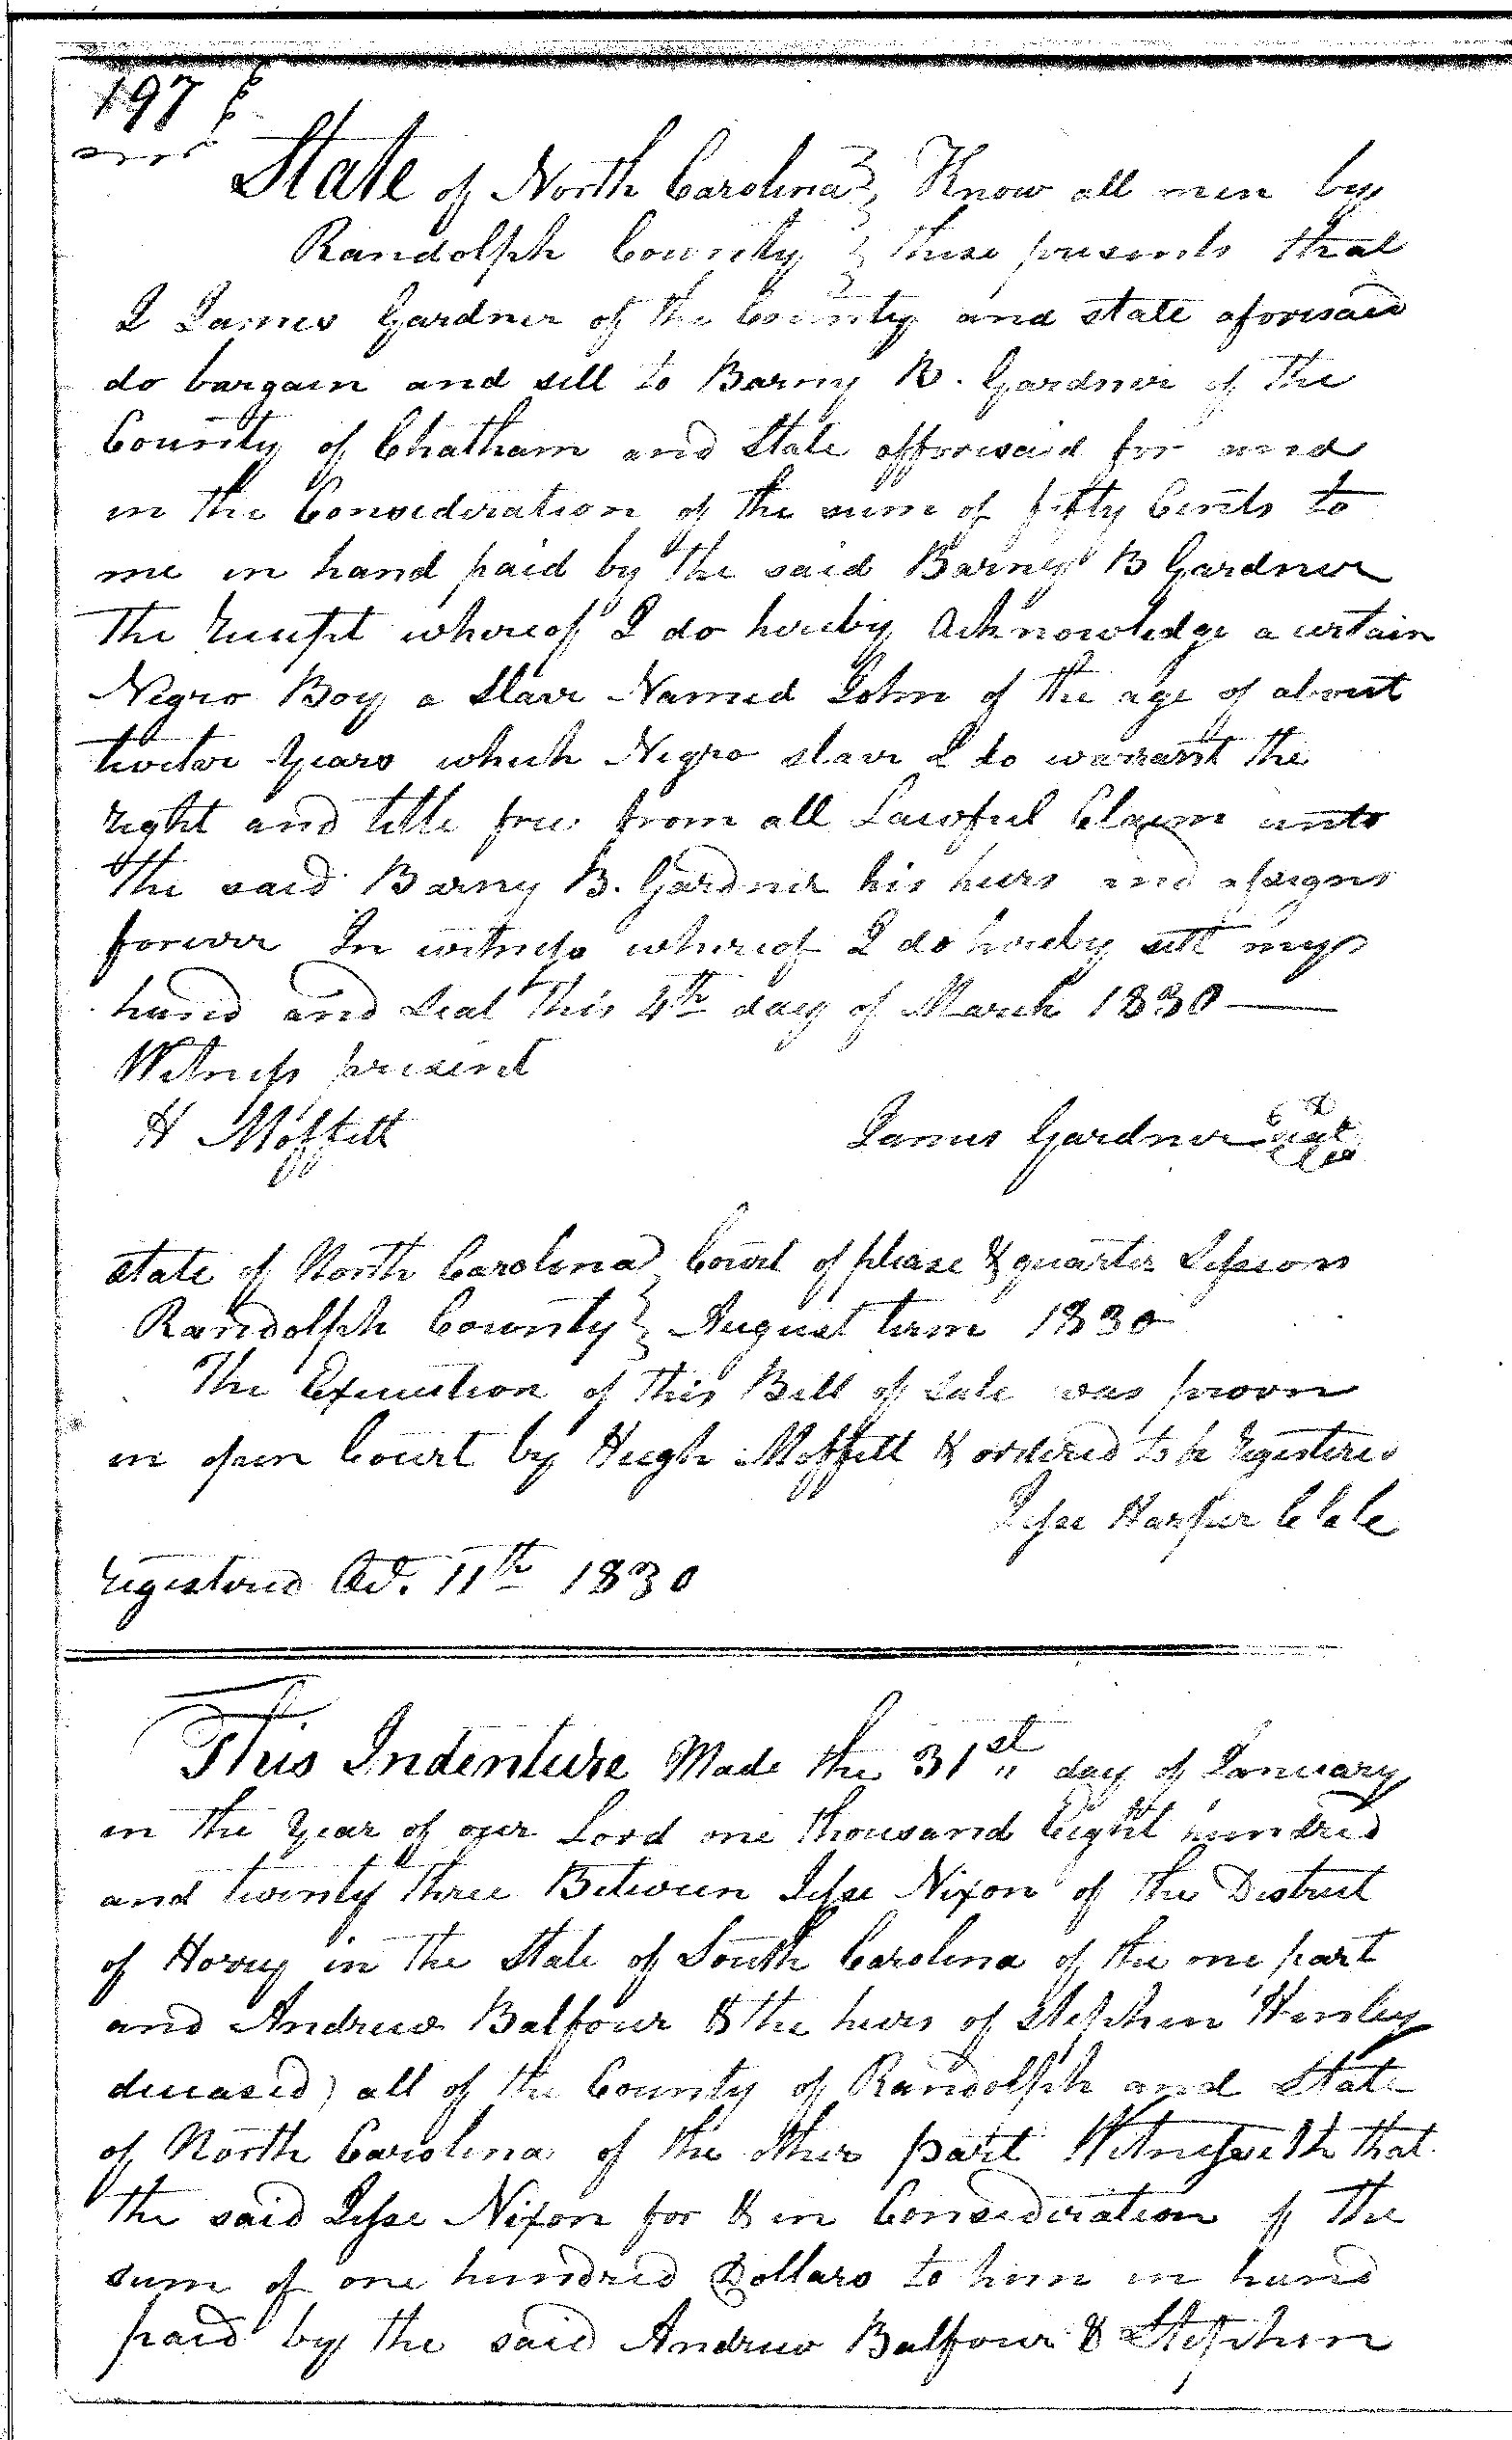 197
State of North Carolina } Know all men by
Randolph County } these presents that
I James Gardner of the County and state aforesaid
do bargain and sell to Barny B. Gardner of the
County of Chatham and State afforesaid for and
in the Consideration of the sum of fifty Cents to
me in hand paid by the said Barney B Gardner
The receipt whereof I do hereby acknowledge a certain
Negro Boy a Slave Named John of the age of about
twelve years which Negro slave I do warrant the
right and title free from all Lawful Claim unto
the said Barny B. Gardner his heirs and assigns
forever In witness whereof I do hereby sett my
hand and Seal This 4th day of March 1830
Witness present
H Moffitt James Gardner seal
state of North Carolina } Court of please & quarter Session
Randolph County } August term 1830
The Execution of this Bill of Sale was prov'n
in open Court by Hugh Moffitt & ordered to be registered
Jesse Harper C C C
registered Oct. 11th 1830
This Indenture Made the 31st day of January
in the Year of our Lord one thousand Eight hundred
and twenty three Between Jesse Nixon of the District
of Horry in the State of South Carolina of the one part
and Andrew Balfour & the heirs of Stephen Henley
deceased) all of the County of Randolph and State
of North Carolina of the other part Witnesseth that
the said Jesse Nixon for & in Consideration of the
sum of one hundred Dollars to him in hand
paid by the said Andrew Balfour & Stephen